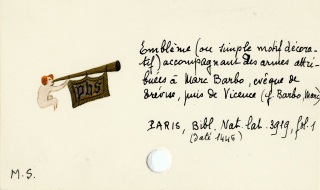 Emblème (ou simple motif décora-
tif) accompagnant des armes attri-
buées à Marc Barbo, évêque de
Trévise, puis de Vicence (cf. Barbo, Marc)
phs
PARIS, Bibl. Nat. lat. 3919, fol. 1
(Daté 1446)
M.S.